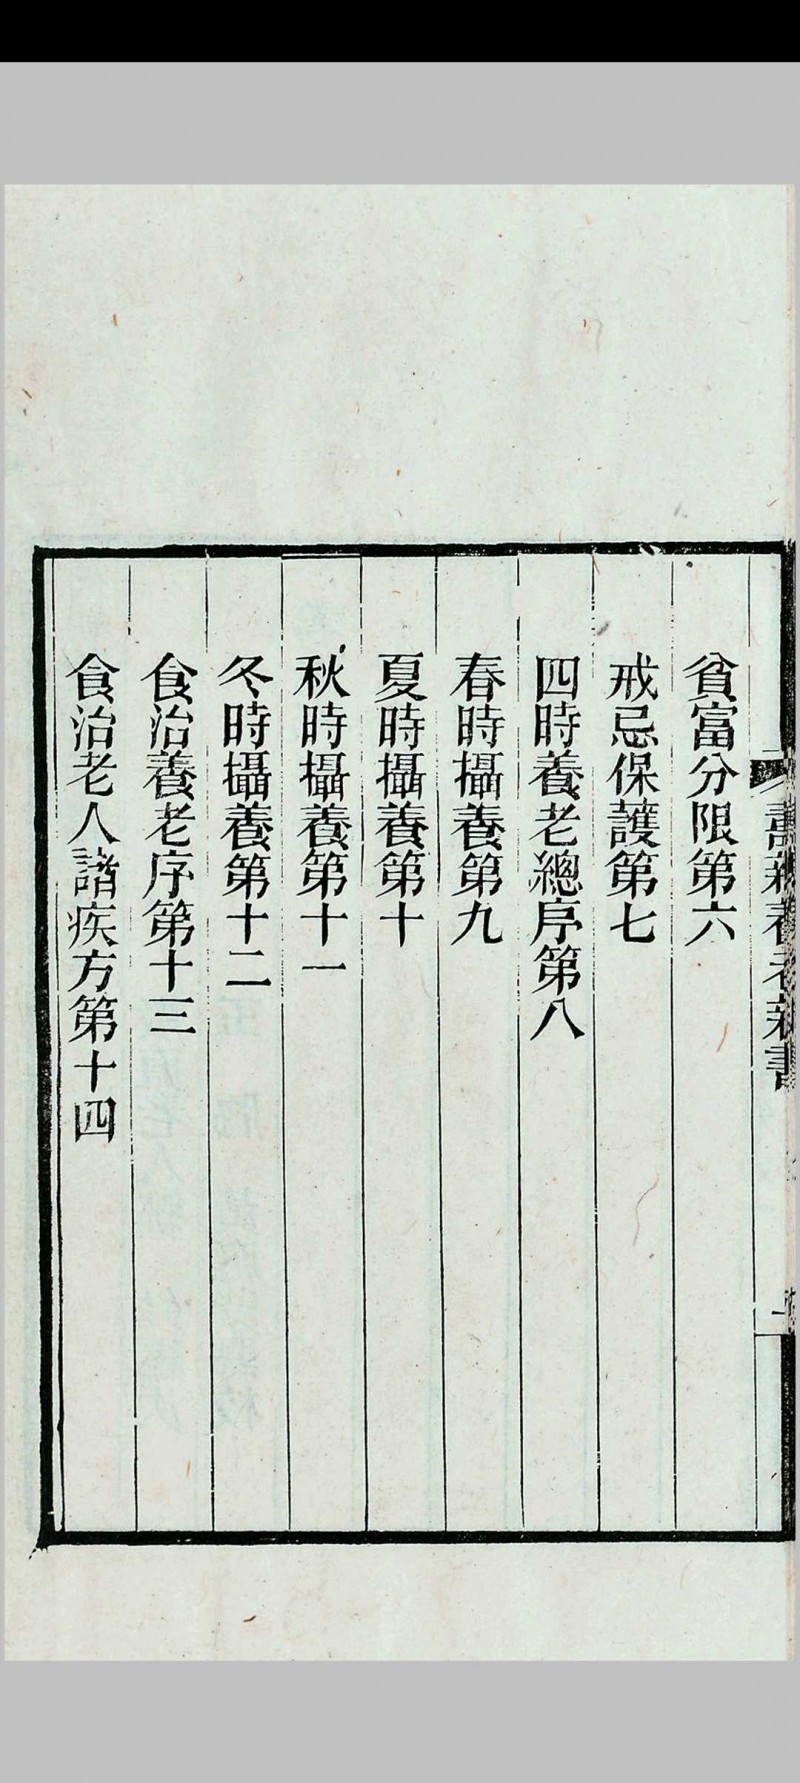 壽親養老新書
貧富分限第六
戒忌保護第七
四時養老總序第八
春時攝養第九
夏時攝養第十
秋時攝養第十一
冬時攝養第十二
食治養老序第十三
食治老人諸疾方第十四